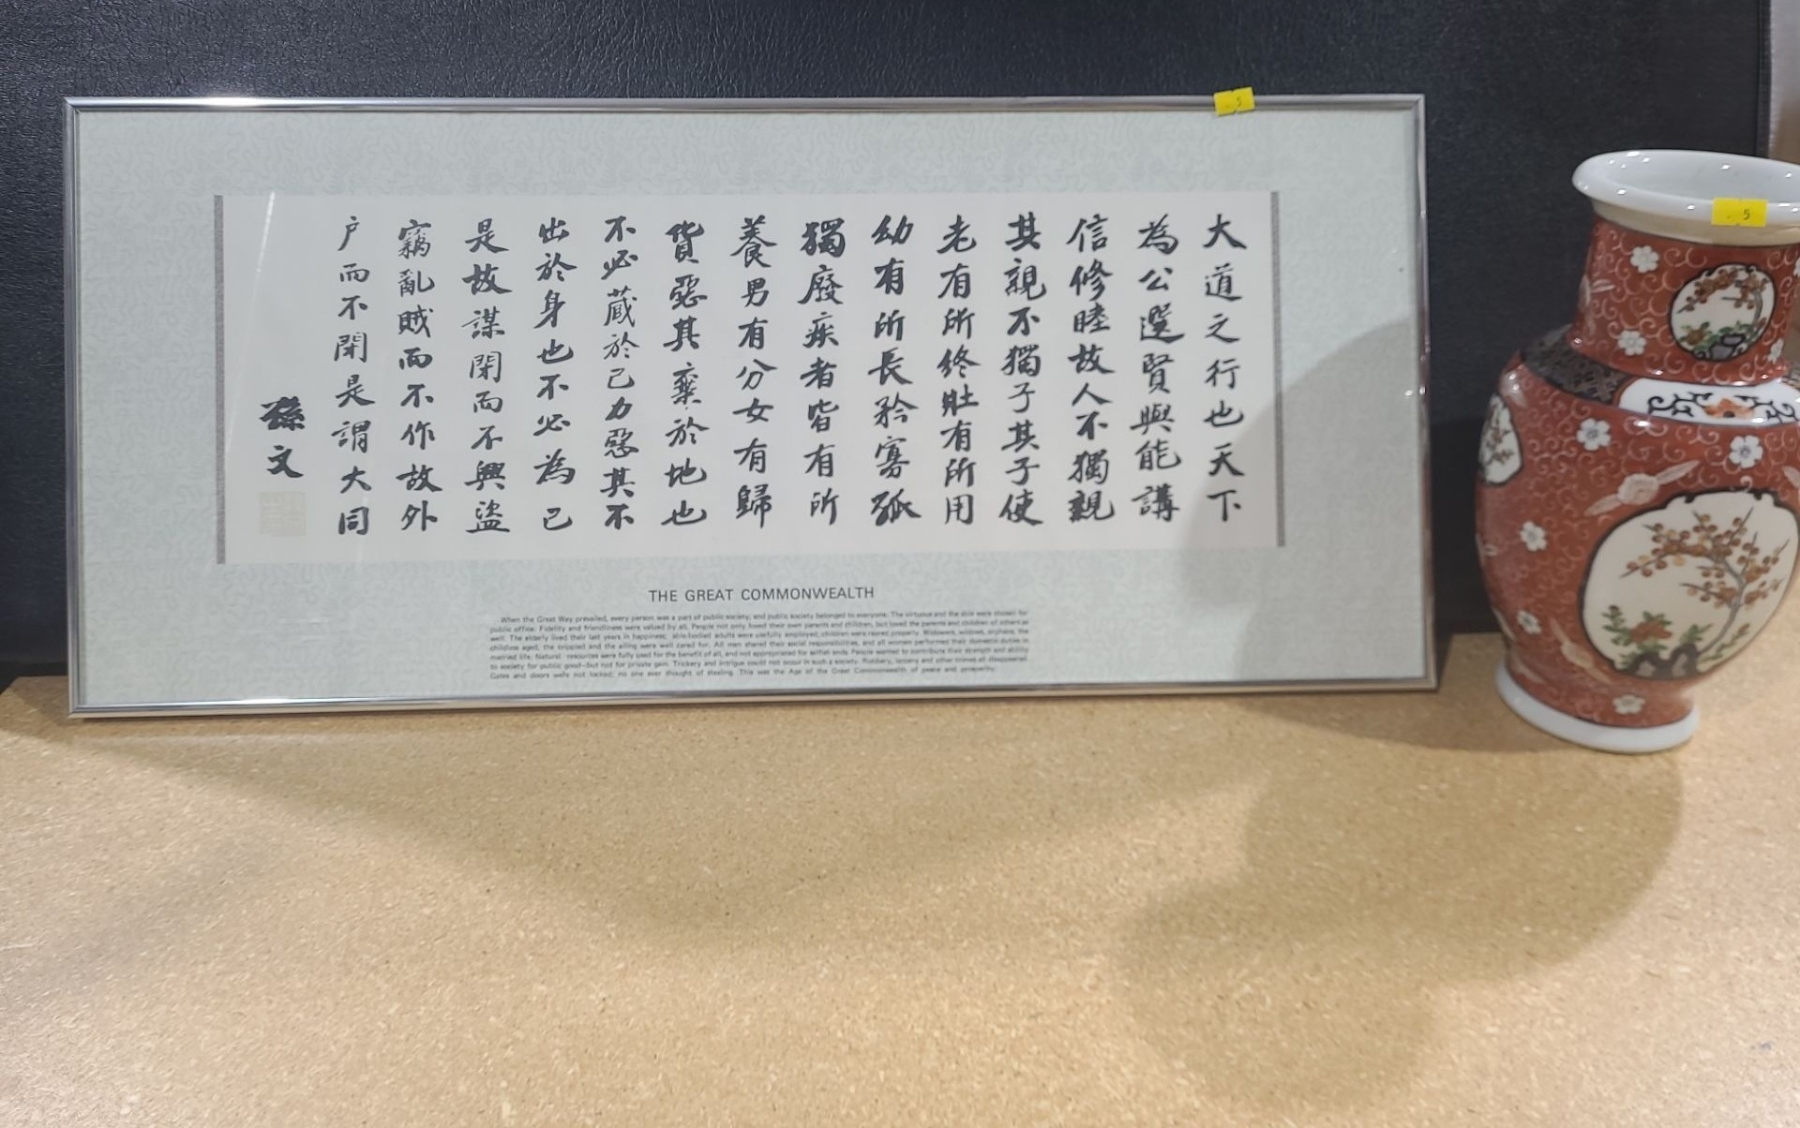 大道之行也天下
為公選賢與能講
信修睦故人不獨親
其親不獨子其子使
老有所終壯有所用
幼有所長矜寡孤
獨廢疾者皆有所
養男有分女有歸
貨惡其棄於地也
不必藏於己力惡其不
出於身也不必為己
是故謀閉而不興盜
竊亂賊而不作故外
户而不閉是謂大同
孫文
THE GREAT COMMONWEALTH
When the Great Way prevailed, every person was a part of public society, and public society belonged to everyone. The virtuous and the able were chosen for
public office. Fidelity and friendliness were valued by all. People not only loved their own parents and children, but loved the parents and children of others as
well. The elderly lived their last years in happiness; able-bodied adults were usefully employed; children were reared properly. Widowers, widows, orphans, the
childless aged, the crippled and the ailing were well cared for. All men shared their social responsibilities, and all women performed their domestic duties in
married life. Natural resources were fully used for the benefit of all, and not appropriated for selfish ends. People wanted to contribute their strength and ability
to society for public good—but not for private gain. Trickery and intrigue could not occur in such a society. Robbery, larceny and other crimes all disappeared.
Gates and doors were not locked; no one ever thought of stealing. This was the Age of the Great Commonwealth of peace and prosperity.
5
5